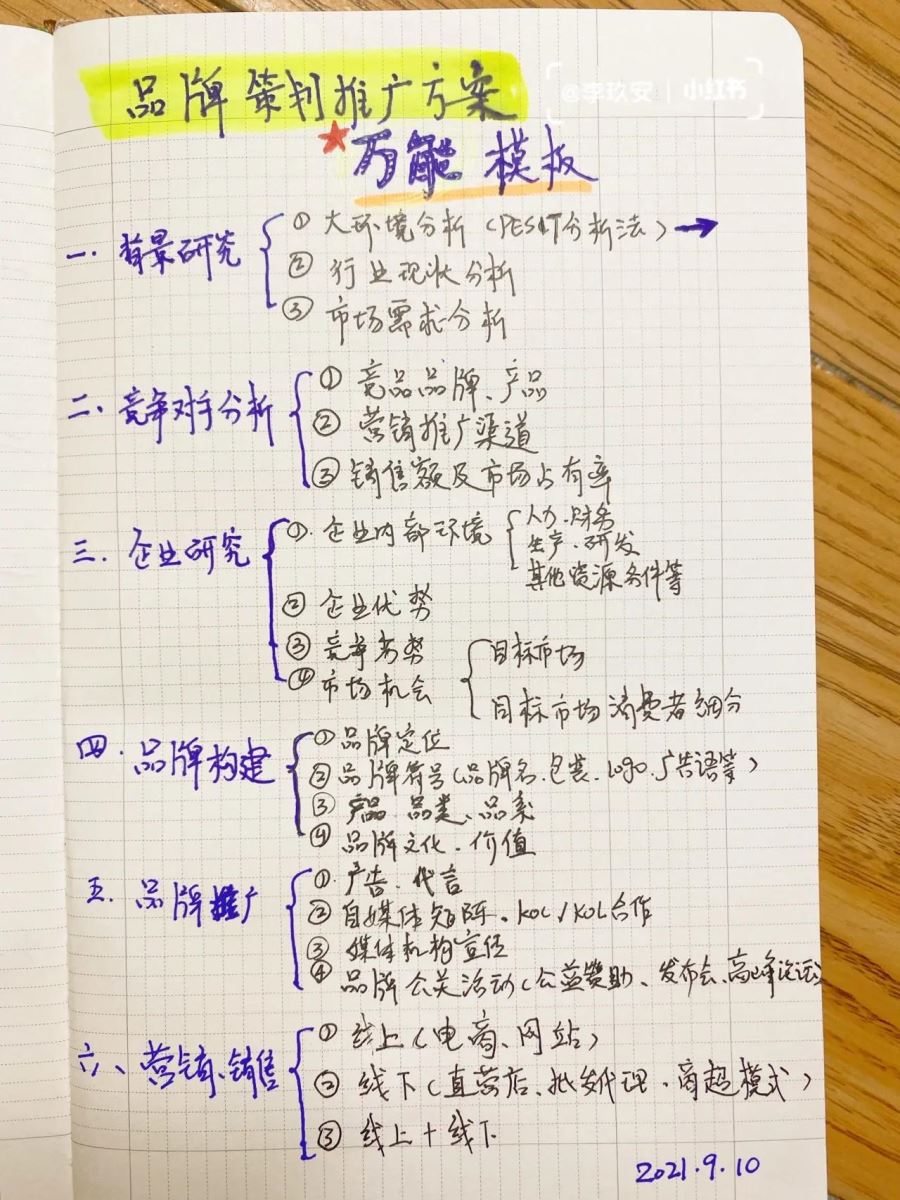 品牌策划推广方案
@李玖安 小红书
万能模板
一. 背景研究
① 大环境分析（PEST分析法）→
② 行业现状分析
③ 市场需求分析
二、竞争对手分析
① 竞品品牌、产品
② 营销推广渠道
③ 销售额及市场占有率
三. 企业研究
①. 企业内部环境
人力. 财务
生产. 研发
其他资源条件等
② 企业优势
③ 竞争劣势
④ 市场机会
目标市场
目标市场消费者细分
四. 品牌构建
① 品牌定位
② 品牌符号（品牌名.包装.logo.广告语等）
③ 产品. 品类、品系
④ 品牌文化. 价值
五. 品牌推广
①. 广告. 代言
② 自媒体矩阵. KOC/KOL合作
③ 媒体机构宣传
④ 品牌公关活动（公益赞助、发布会、高峰论坛
六、营销、销售
① 线上（电商、网站）
② 线下（直营店、批发代理. 商超模式）
③ 线上+线下
2021.9.10